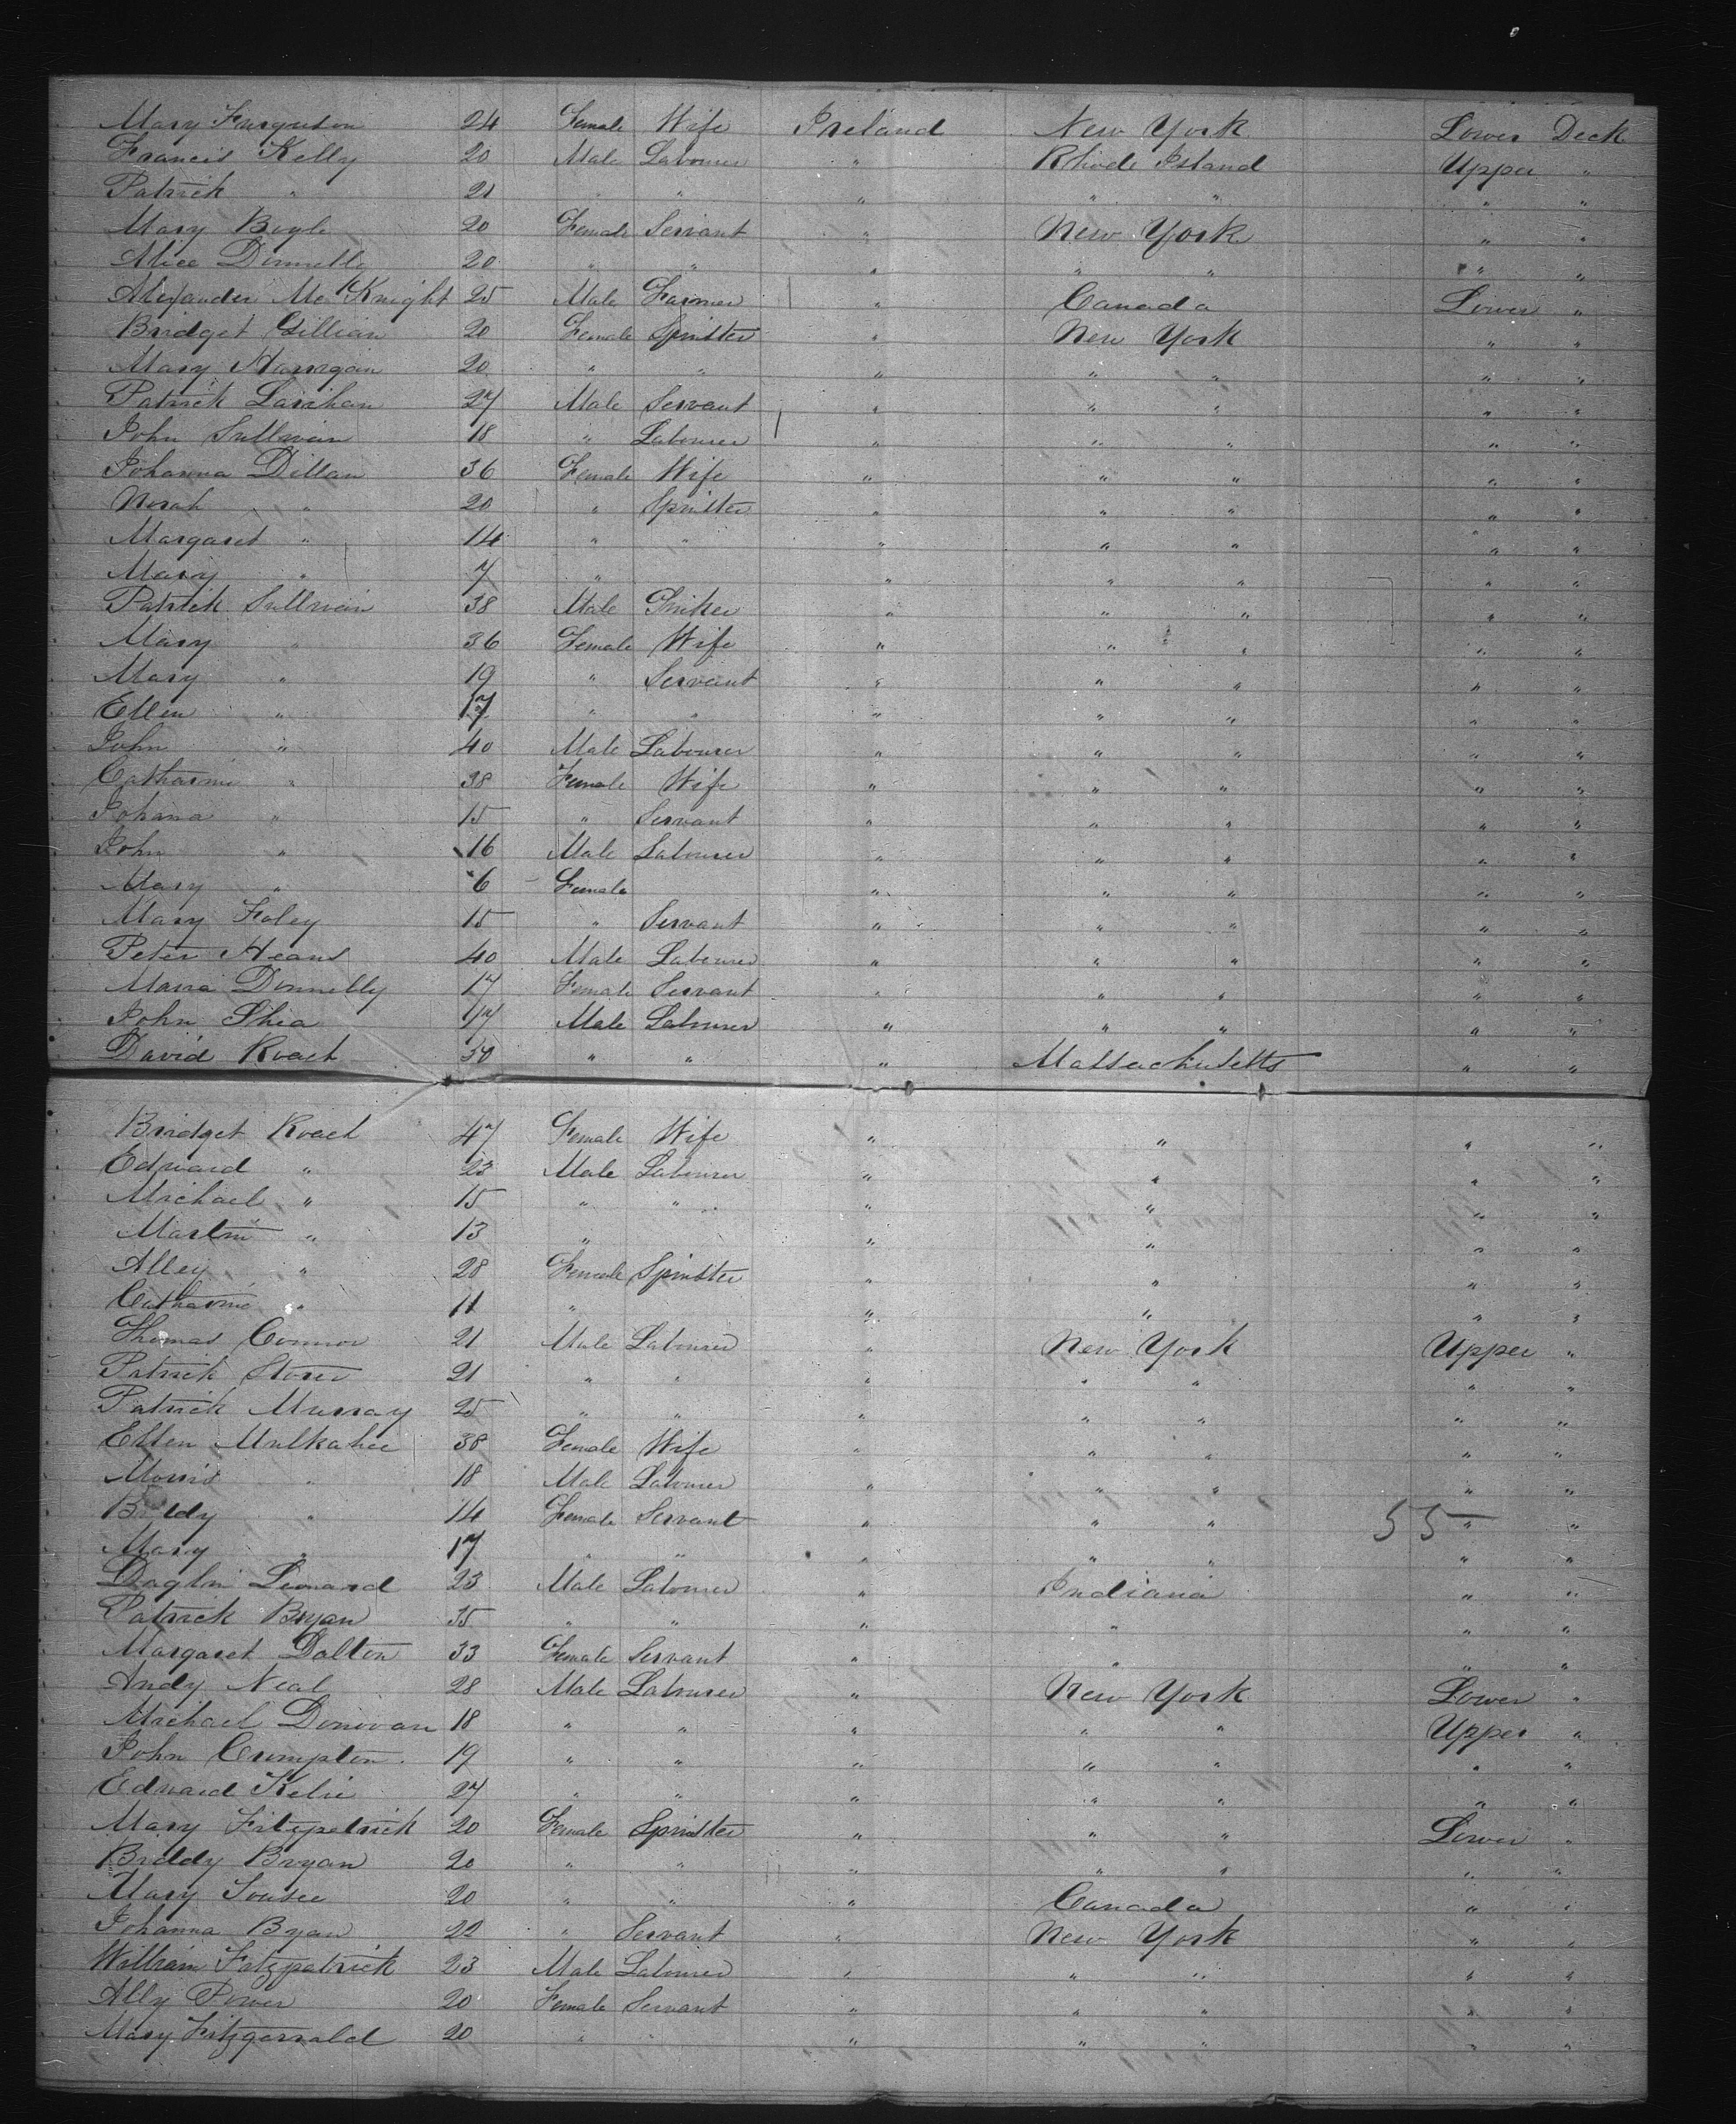 Mary Furguson 24 Female Wife Ireland New York Lower Deck
Francis Kelly 20 Male Labourer " Rhode Island Upper "
Patrick " 21 " " " " " " "
Mary Bogle 20 Female Servant " New York " "
Alice Donnelly 20 " " " " " " "
Alexander McKnight 25 Male Farmer " Canada Lower "
Bridget Gillian 20 Female Spinster " New York " "
Mary Harrigan 20 " " " " " " "
Patrick Larihan 27 Male Servant " " " " "
John Sullivan 18 " Labourer " " " " "
Johanna Dillan 36 Female Wife " " " " "
Norah " 20 " Spinster " " " " "
Margaret " 14 " " " " " " "
Mary " 7 " " " " " "
Patrick Sullivan 38 Male " " " " "
Mary " 36 Female Wife " " " " "
Mary " 19 " Servant " " " " "
Ellen " 17 " " " " " " "
John " 40 Male Labourer " " " " "
Catharine " 38 Female Wife " " " " "
Johana " 15 " Servant " " " " "
John " 16 Male Labourer " " " " "
Mary " 6 Female " " " " "
Mary Foley 15 " Servant " " " " "
Peter Heans 40 Male Labourer " " " " "
Maria Donnelly 17 Female Servant " " " " "
John Shea 17 Male Labourer " " " " "
David Roach 50 " " " Massachusetts " "
Bridget Roach 47 Female Wife " " " "
Edward " 23 Male Labourer " " " "
Michael " 15 " " " " " "
Martin " 13 " " " " "
Alley " 28 Female Spinster " " " "
Catharine " 11 " " " " "
Thomas Connor 21 Male Labourer " New York Upper "
Patrick Storer 21 " " " " " " "
Patrick Murray 25 " " " " " " "
Ellen Mulkahee 38 Female Wife " " " " "
Morris " 18 Male Labourer " " " " "
Biddy " 14 Female Servant " " " 55 " "
Mary " 17 " " " " " " "
Leonard 23 Male Labourer " Indiana " "
Patrick Bryan 35 " " " " " "
Margaret Dalton 33 Female Servant " " " "
Andy Neal 28 Male Labourer " New York Lower "
Michael Donovan 18 " " " " " Upper "
John Crumpton 19 " " " " " " "
Edward Kelie 27 " " " " " " "
Mary Fitzpatrick 20 Female Spinster " " " Lower "
Biddy Bryan 20 " " " " " " "
Mary 20 " " " Canada " "
Johanna Bryan 22 " Servant " New York " "
William Fitzpatrick 23 Male Labourer " " " " "
Ally Power 20 Female Servant " " " " "
Mary Fitzgerrald 20 " " " " " " "